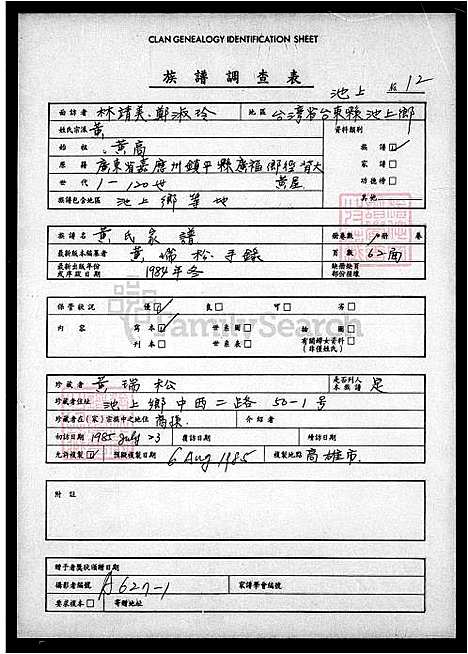 CLAN GENEALOGY IDENTIFICATION SHEET
族譜調查表
池上 12
面訪者 林靖美、鄭淑玲 地區 台灣省台東縣池上鄉
姓氏宗派 黃 資料類別
始祖 黃 族譜 ☑
原籍 廣東省嘉應州鎮平縣廣福鄉 黃屋 家譜 □
世代 1-120世 功德榜 □
族譜包含地區 池上鄉等地 其他
族譜名 黃氏家譜 冊卷數 1 冊 卷
最新版本編纂者 黃瑞松手錄 頁數 62面
最新出版年份或序跋日期 1984年冬 缺冊缺頁部份接壤
保管狀況 優 ☑ 良 □ 可 □ 劣 □
內容 寫本 ☑ 世系圖 □ 插圖 □
刊本 □ 世系表 □ 有關婦女資料(非僅姓氏) □
珍藏者 黃瑞松 是否列入本族譜 是
珍藏者住址 池上鄉中西二路50-1號
珍藏者在(家)宗族中之地位 裔孫 介紹者
初訪日期 1985 July 23 複訪日期 續訪日期
允許複製 ☑ 預擬複製日期 6 Aug 1985 複製地點 高雄市
附註
贈予者獎狀頒贈日期
攝影者編號 A627-1 家譜學會編號
要求複本 □ 寄贈地址
FamilySearch